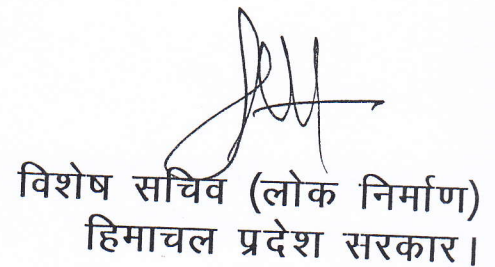 विशेष सचिव (लोक निर्माण)
हिमाचल प्रदेश सरकार।